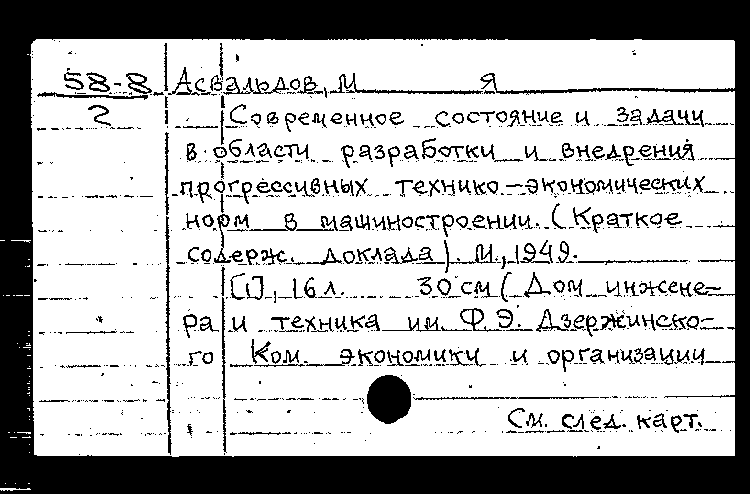 58-8 Асвальдов, М Я
2 Современное состояние и задачи
в области разработки и внедрения
прогрессивных технико-экономических
норм в машиностроении. (Краткое
содерж. доклада). М., 1949.
[1], 16 л. 30 см (Дом инжене-
ра и техника им. Ф.Э. Дзержинско-
го Ком. экономики и организации
См. след. карт.